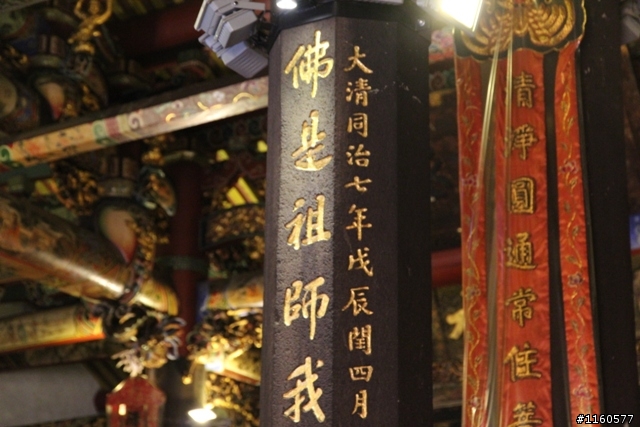 大清同治七年戊辰閏四月
佛是祖師我
清淨圓通常住
#1160577